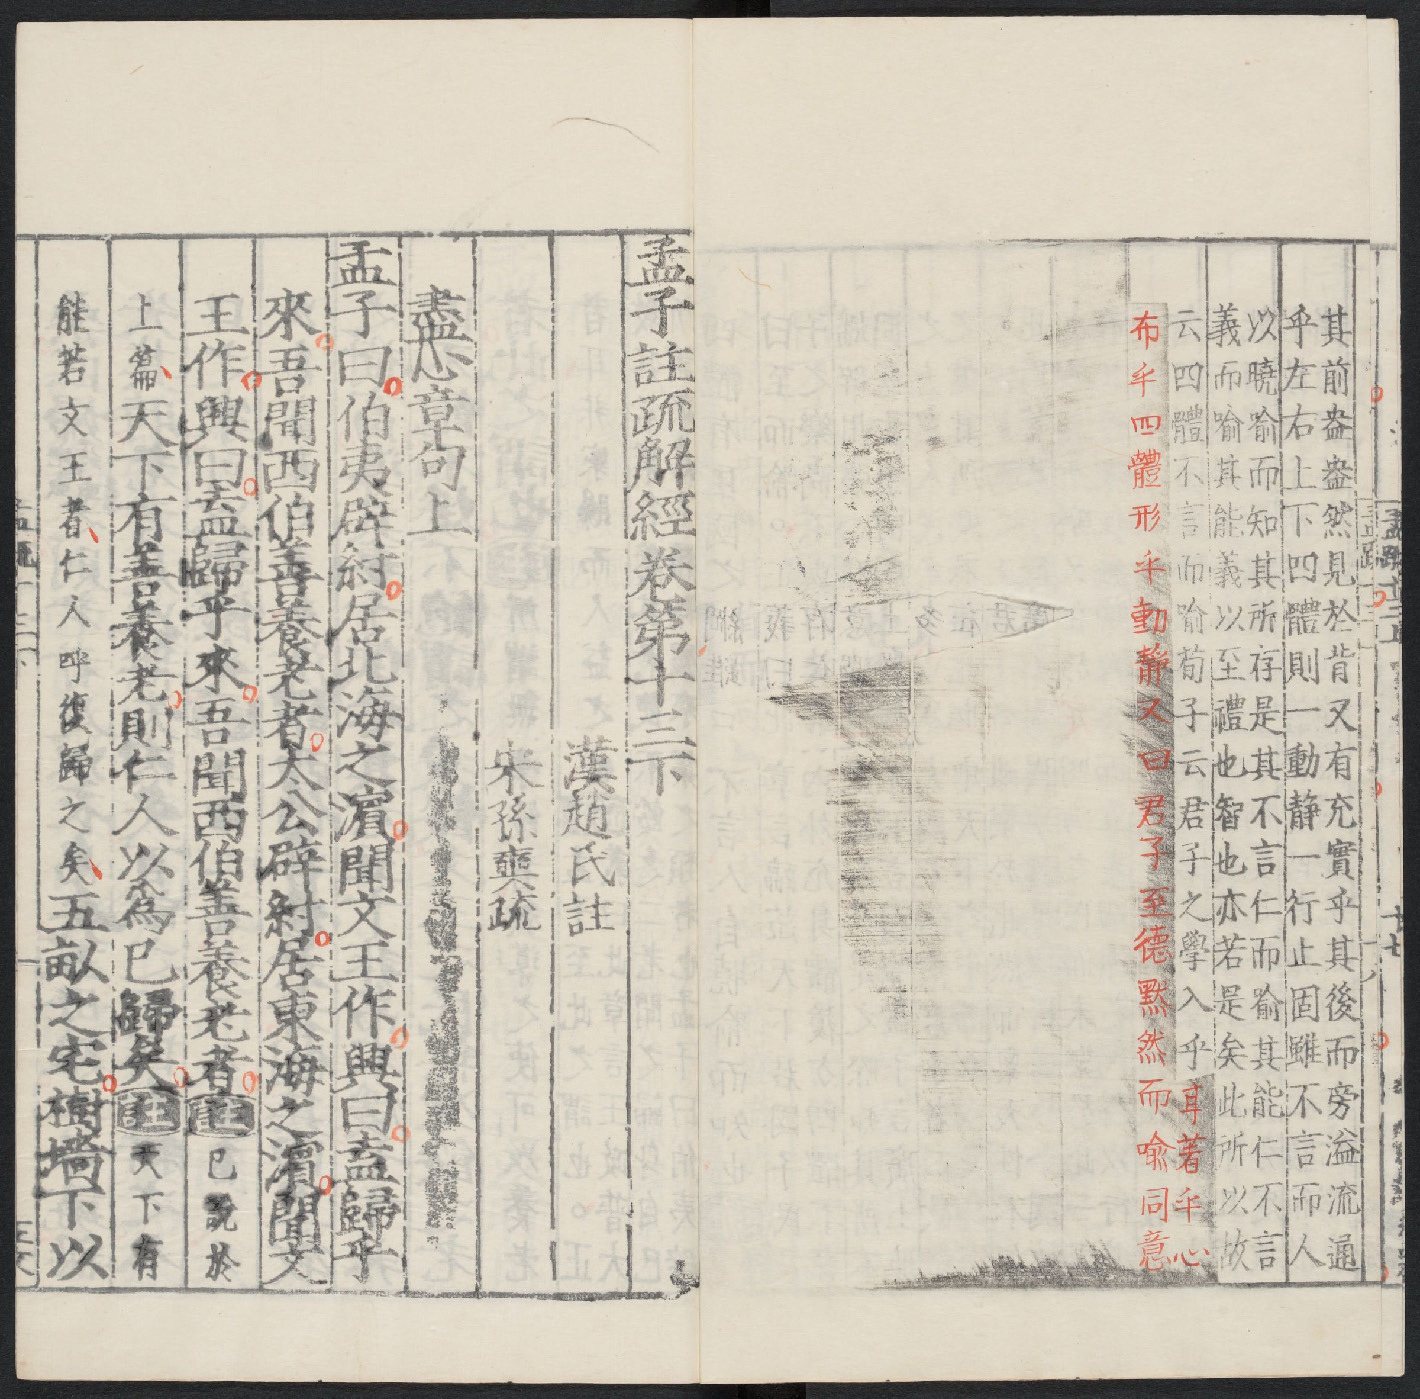 其前盎盎然見於背又有充實乎其後而旁溢流通
乎左右上下四體則一動靜一行止固雖不言而人
以曉喻而知其所存是其不言仁而喻其能仁不言
義而喻其能義以至禮也智也亦若是矣此所以故
云四體不言而喻荀子云君子之學入乎耳著乎心
布乎四體形乎動靜又曰君子至德黙然而喻同意
孟子註疏解經卷第十三下
漢趙氏註
宋孫奭疏
盡心章句上
孟子曰伯夷辟紂居北海之濵聞文王作興曰盍歸乎
來吾聞西伯善養老者太公辟紂居東海之濵聞文
王作興曰盍歸乎來吾聞西伯善養老者註已說於
上篇天下有善養老則仁人以爲已歸矣註天下有
能若文王者仁人呼復歸之矣五畝之宅樹墻下以